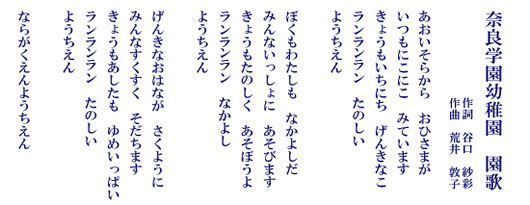 奈良学園幼稚園　園歌
作詞　谷口　紗彩
作曲　荒井　敦子
あおいそらから　おひさまが
いつもにこにこ　みています
きょうもいちにち　げんきなこ
ランランラン　たのしい
ようちえん
ぼくもわたしも　なかよしだ
みんないっしょに　あそびます
きょうもたのしく　あそぼうよ
ランランラン　なかよし
ようちえん
げんきなおはなが　さくように
みんなすくすく　そだちます
きょうもあしたも　ゆめいっぱい
ランランラン　たのしい
ようちえん
ならがくえんようちえん